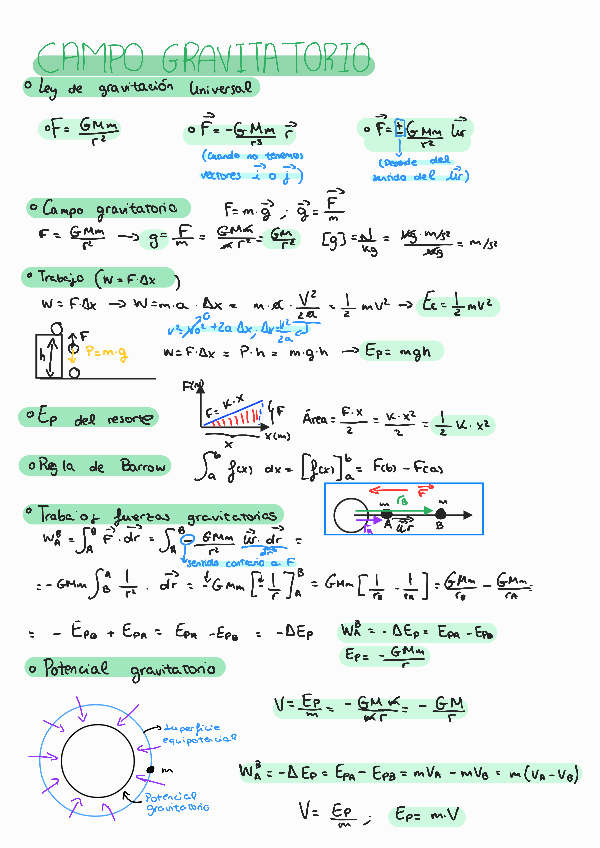 CAMPO GRAVITATORIO
Ley de gravitación Universal
F = GMm/r²
F⃗ = -GMm/r³ r⃗
F⃗ = ± GMm/r² u⃗r
(Cuando no tenemos
vectores i⃗ o j⃗)
(Depende del
sentido del u⃗r)
Campo gravitatorio
F = m·g⃗ ; g⃗ = F⃗/m
F = GMm/r² → g = F/m = GMm/m r² = GM/r²
[g] = N/kg = kg·m/s²/kg = m/s²
Trabajo (W = F·Δx)
W = F·Δx → W = m·a · Δx = m·a · V²/2a = 1/2 mV² → Ec = 1/2 mV²
v² = v0² + 2a Δx, Δx = v²/2a
0
h
F
P = m·g
W = F·Δx = P·h = m·g·h → Ep = mgh
Ep del resorte
F(N)
F = K·X
F
X
X(m)
Área = F·x/2 = K·x²/2 = 1/2 K·x²
Regla de Barrow
∫ab f(x) dx = [f(x)]ab = F(b) - F(a)
Trabajo, fuerzas gravitatorias
F⃗
rB
m
m
rA
A
u⃗r
B
WAB = ∫AB F⃗·dr⃗ = ∫AB - GMm/r² u⃗r·dr⃗ =
sentido contrario a F
= -GMm ∫BA 1/r² · dr⃗ = ± GMm [± 1/r]AB = GMm [1/rB - 1/rA] = GMm/rB - GMm/rA =
= - EpB + EpA = EpA - EpB = -ΔEp
WAB = -ΔEp = EpA - EpB
Ep = -GMm/r
Potencial gravitatorio
V = Ep/m = -GMm/m r = -GM/r
Superficie
equipotencial
m
Potencial
gravitatorio
WAB = -ΔEp = EpA - EpB = mVA - mVB = m(VA - VB)
V = Ep/m ; Ep = m·V